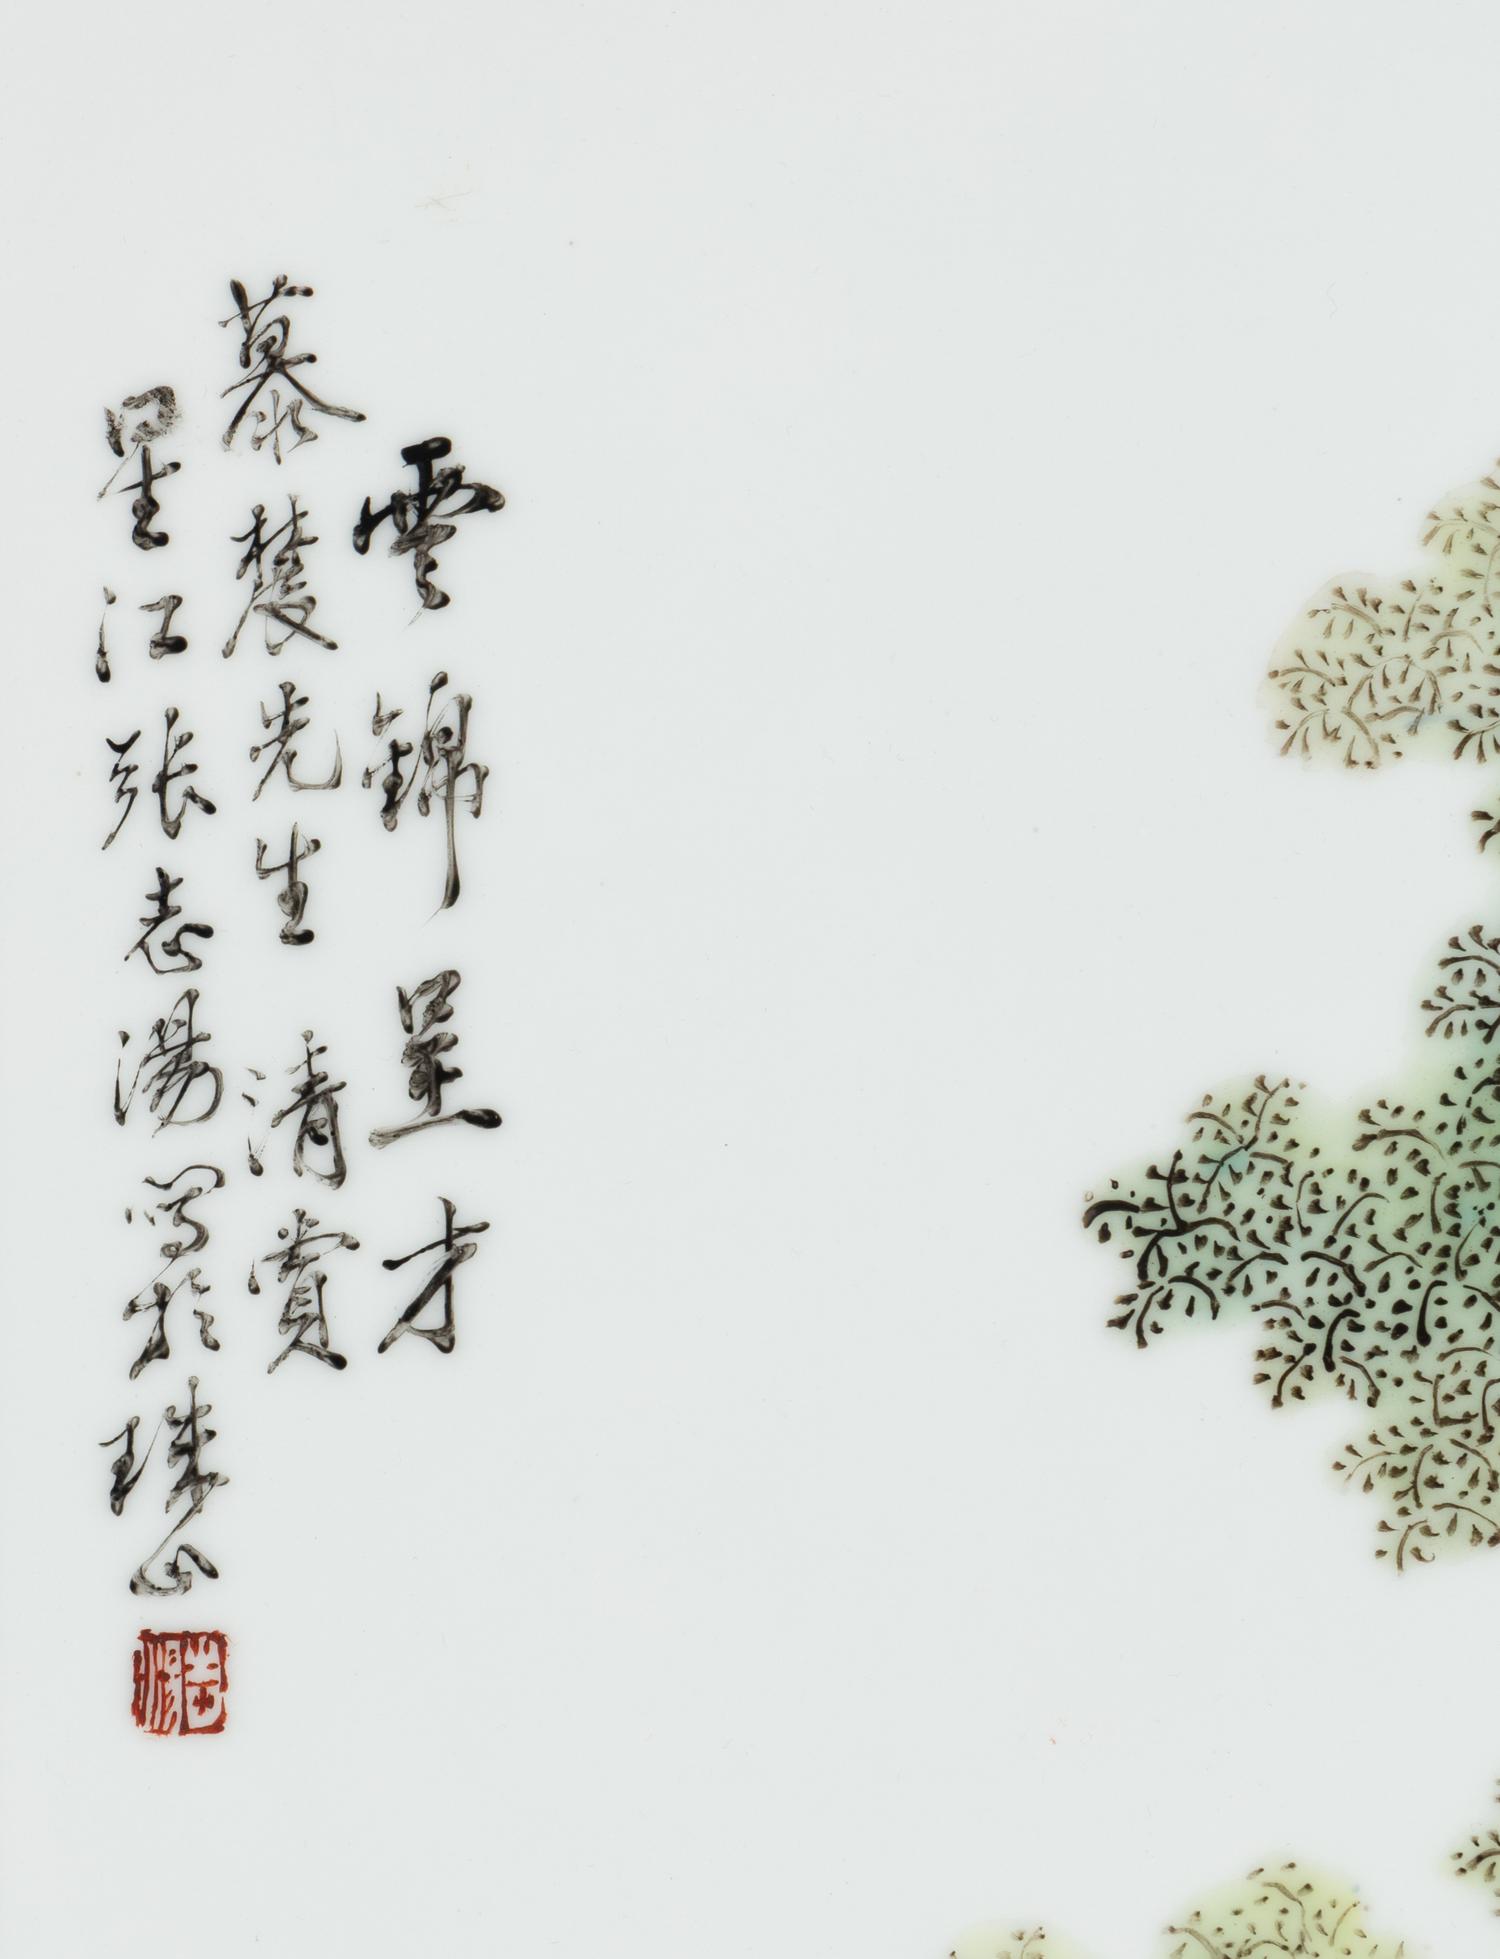 雲錦呈才
慕辳先生 清賞
星江張志湯寫於珠山
志湯